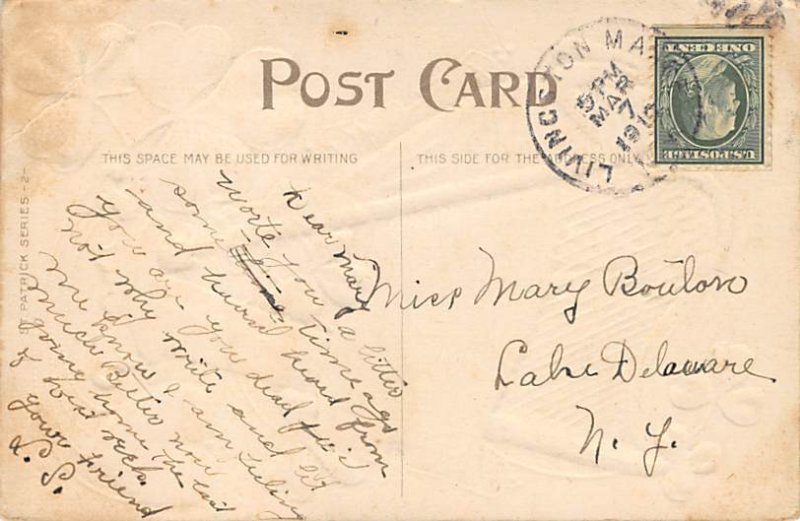 POST CARD
THIS SPACE MAY BE USED FOR WRITING
THIS SIDE FOR THE ADDRESS ONLY
ST PATRICK SERIES - 2
LIVINGSTON MA
5 PM
MAR
7
1910
U.S. POSTAGE
ONE CENT
Dear Mary I
worte you a litter
some time time ago
and haven heard from
you are you dead if
not why write and let
me know I am feeling
much Better now
going home the last
of next week
your friend
L. S.
Miss Mary Boulon
Lake Delaware
N. Y.